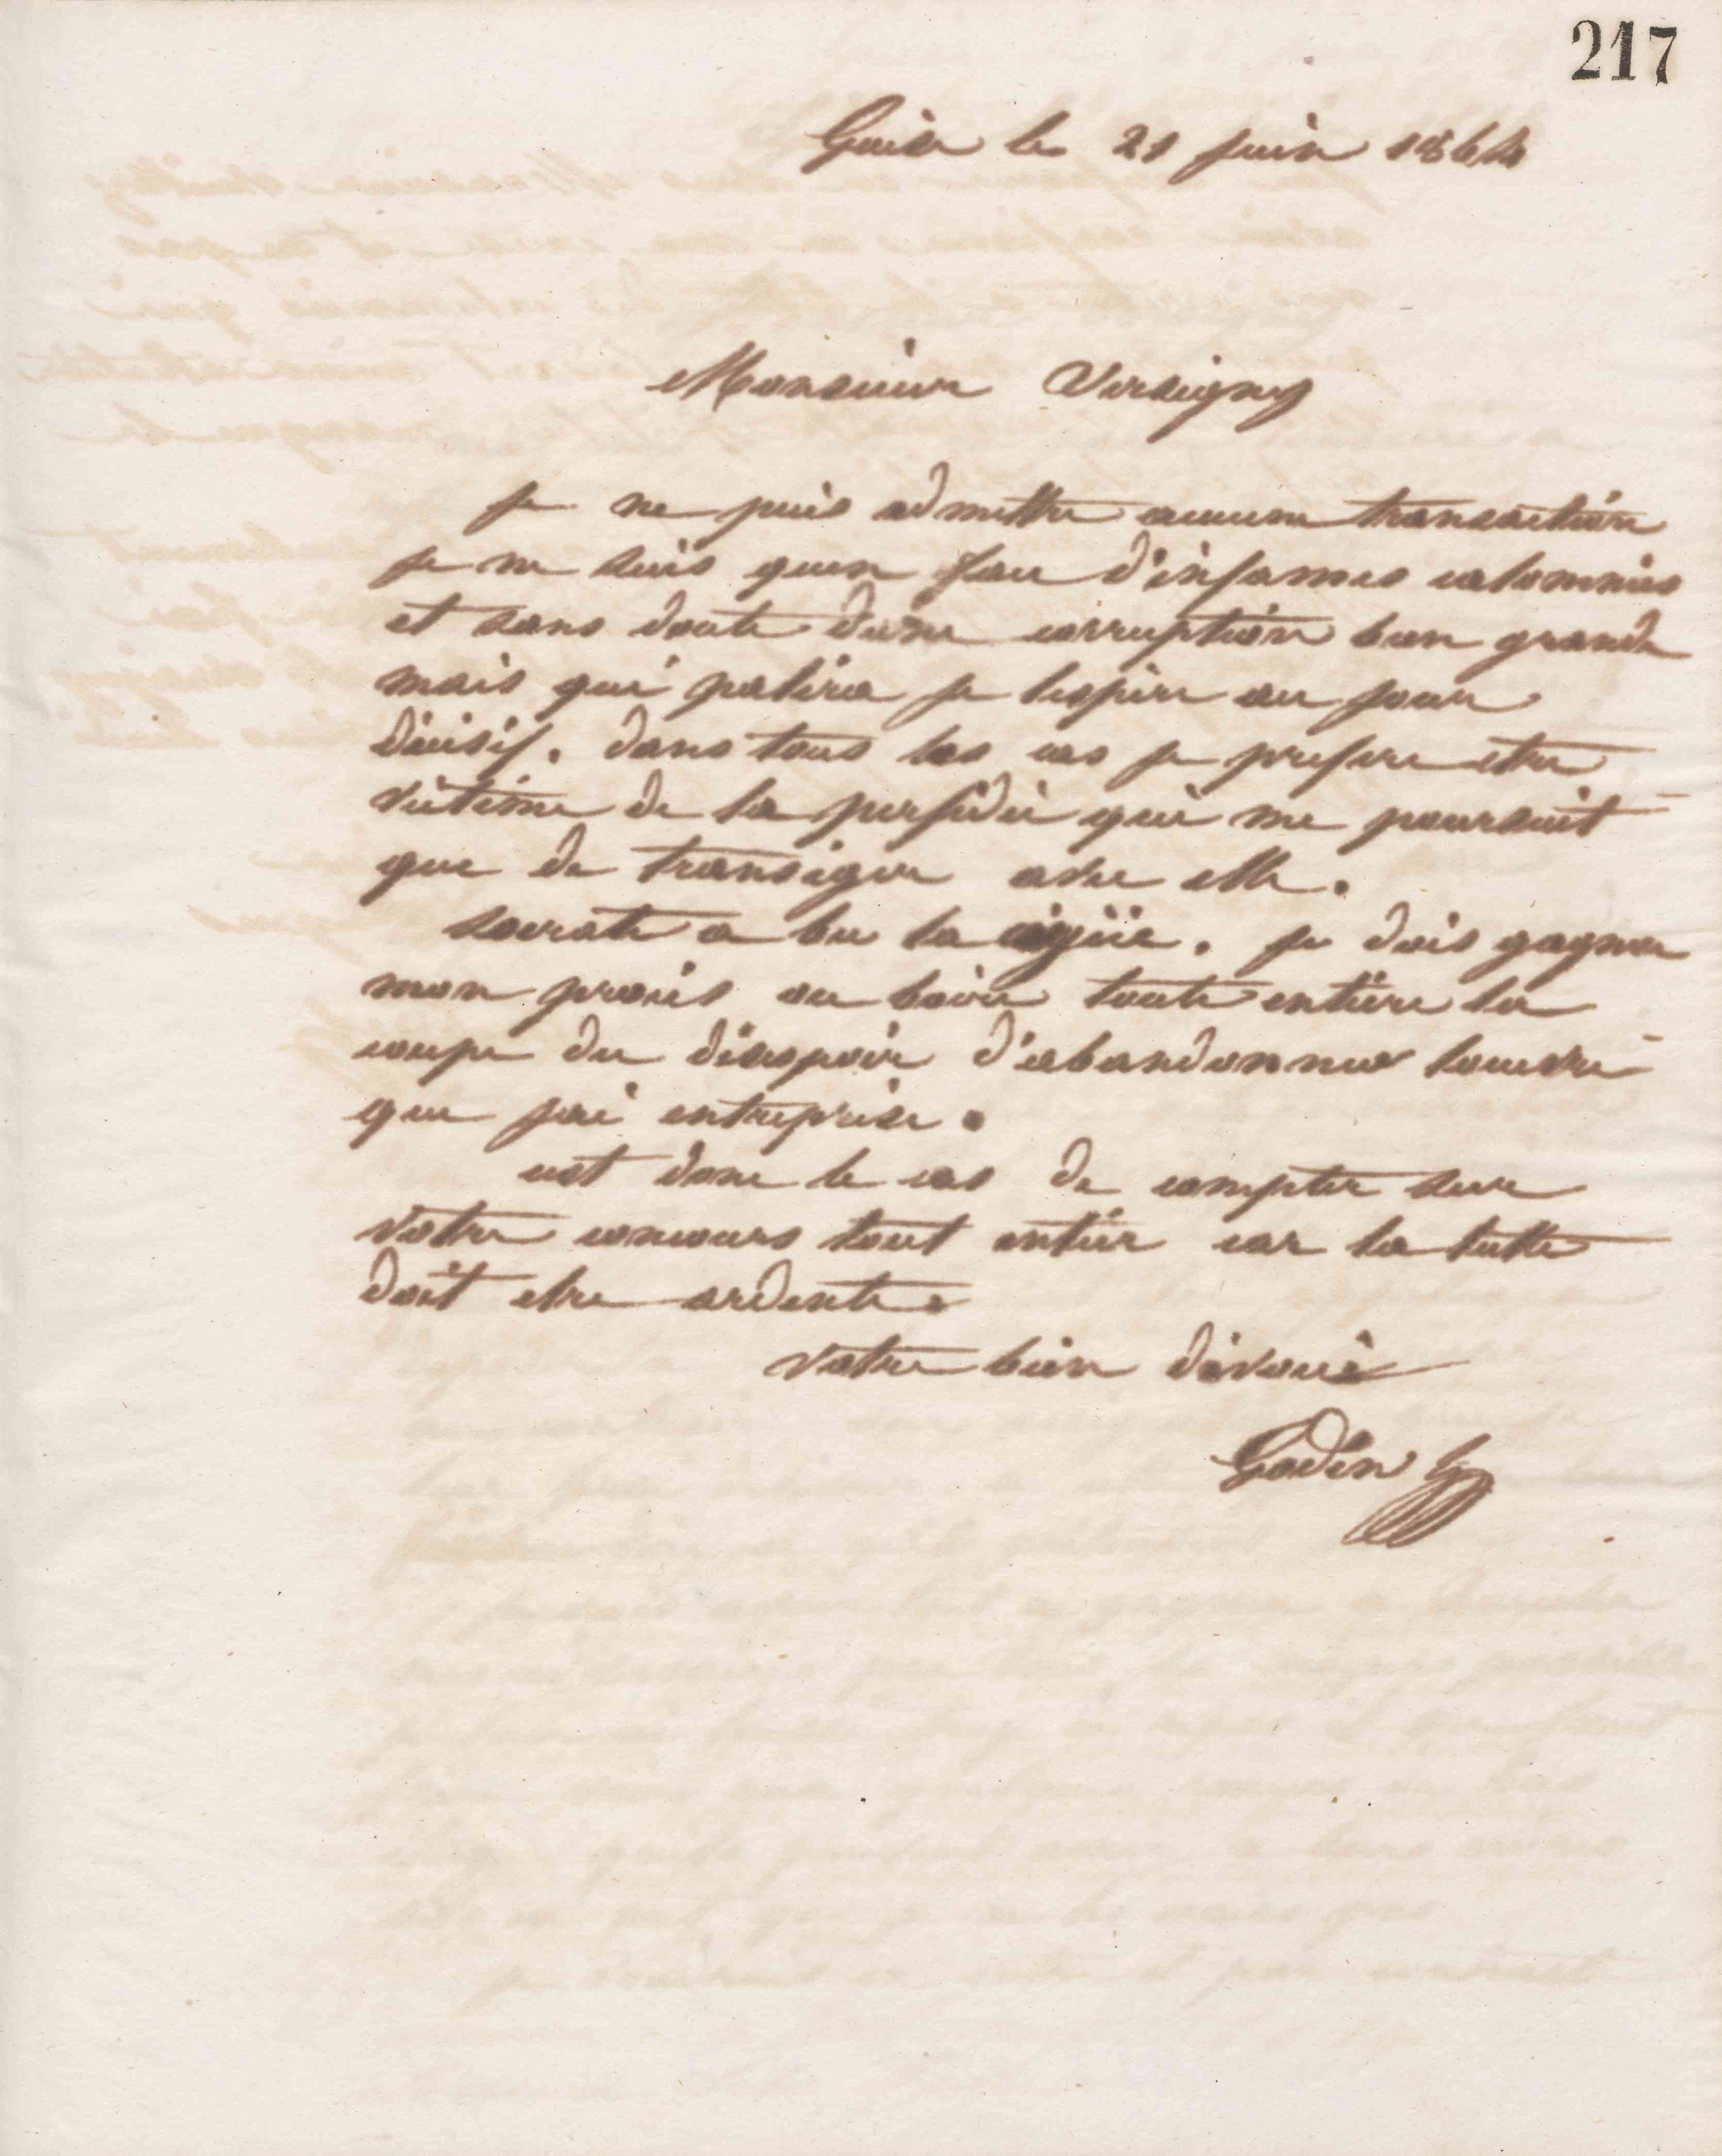 217
Guise le 21 juin 1864
Monsieur Versigny
je ne puis admettre aucune transaction
je ne suis quen face d'infames calomnies
et sans doute dune corruption bien grande
mais qui palira je lespère au jour
décisif. dans tous les cas je prefere etre
victime de la perfidie qui me poursuit
que de transiger avec elle.
socrate a bu la cigüe. je dois gagner
mon procès ou boire toute entière la
coupe du désespoir d'abandonner louvre
que jai entreprise.
cest donc le cas de compter sur
votre concours tout entier car la lutte
doit etre ardente.
votre bien dévoué
Godin